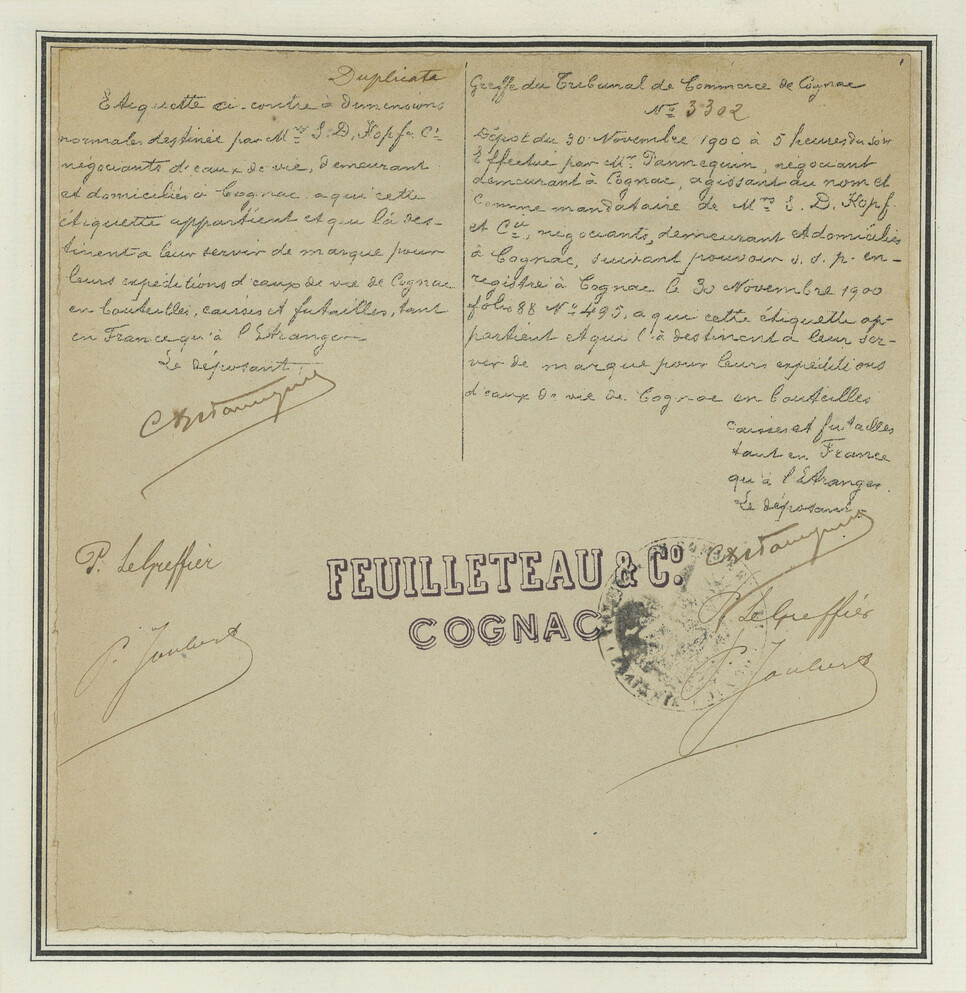 Duplicata
Etiquette ci-contre à dimensions
normales destinée par Mrs S. D. Kopf & Cie
négociants d'eaux de vie, demeurant
et domiciliés à Cognac, a qui cette
étiquette appartient et qui l'à des-
tinent a leur servir de marque pour
leurs expéditions d'eaux de vie de Cognac
en bouteilles, caisses et futailles, tant
en France qu'à l'Etranger
Le déposant
Greffe du Tribunal de Commerce de Cognac
No 3302
Dépot du 30 Novembre 1900 à 5 heures du soir
Effectué par Mr Tannequin, négociant
demeurant à Cognac, agissant au nom et
comme mandataire de Mrs S. D. Kopf
et Cie, négociants, demeurant et domiciliés
à Cognac, suivant pouvoir s. s. p. en-
registré à Cognac le 30 Novembre 1900
folio 88 No 495, a qui cette étiquette ap-
partient et qui l'à destinent a leur ser-
vir de marque pour leurs expéditions
d'eaux de vie de Cognac en bouteilles
caisses et futailles
tant en France
qu'à l'Etranger.
Le déposant
P. Le Greffier
P. Joubert
FEUILLETEAU & Co.
COGNAC
P. Le Greffier
P. Joubert